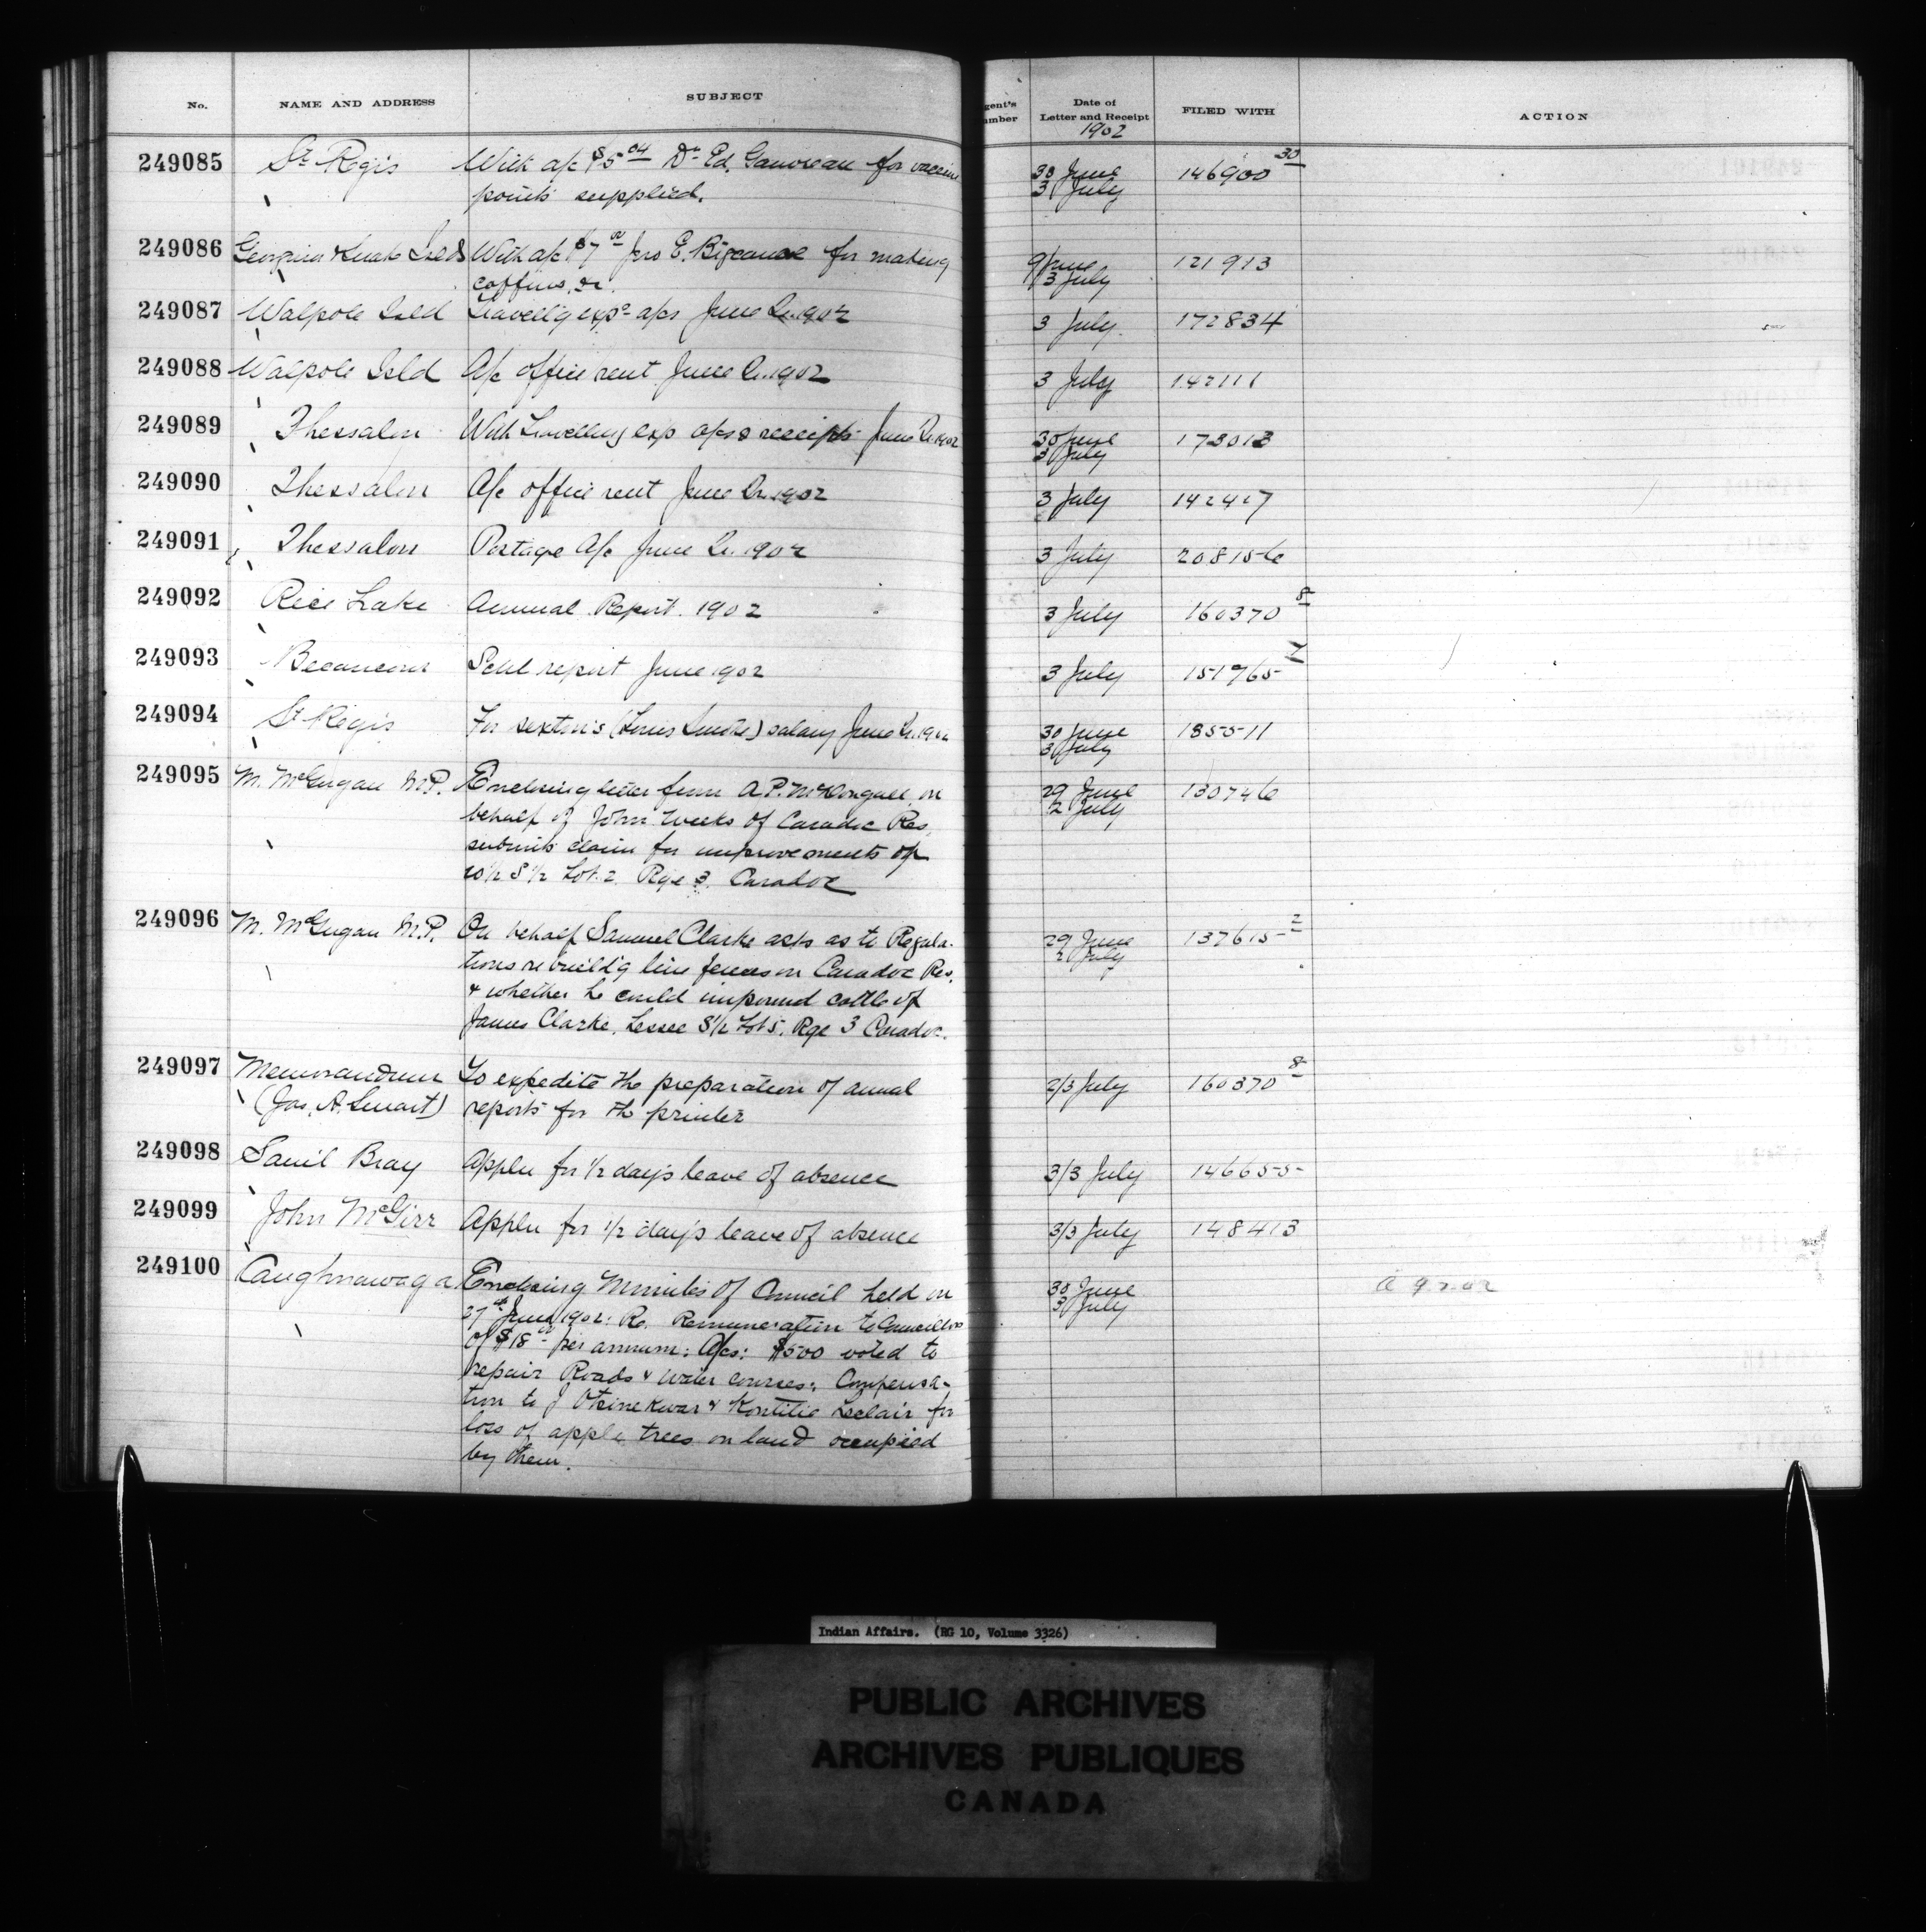 No. NAME AND ADDRESS SUBJECT gent's umber Date of Letter and Receipt FILED WITH ACTION
1902
249085 St Regis With a/c $5 04 Dr Ed. Gauvreau for vaccine 30 June 146900 30
points supplied. 3 July
249086 Georgina & Snake Islds With a/c $7 00 Jas E. Bigcanoe for making 9 June 121913
coffins, &c. 3 July
249087 Walpole Isld Travell'g exps a/cs June Qr. 1902 3 July 172834
249088 Walpole Isld A/c office rent June Qr. 1902 3 July 142111
249089 Thessalon With Travelling exp a/cs & receipts June Qr. 1902 30 June 173013
3 July
249090 Thessalon A/c office rent June Qr. 1902 3 July 142417
249091 Thessalon Postage A/c June Qr. 1902 3 July 208156
249092 Rice Lake Annual Report. 1902 3 July 160370 8
249093 Becancour Schl report June 1902 3 July 151765 7
249094 St Regis For sexton's (Louis) salary June Qr. 1902 30 June 185511
3 July
249095 M. McGugan M.P. Enclosing letter from A.P. McDougall, on 29 June 130746
behalf of John Weeks of Caradoc Res. 2 July
submits claim for improvements of
S 1/2 Lot 2. Rge 3. Caradoc
249096 M. McGugan M.P. On behalf Samuel Clarke asks as to Regula- 29 June 137615 2
tions re build'g line fences on Caradoc Res. 2 July
& whether he could impound cattle of
James Clarke, Lessee S 1/2 Lot 5, Rge 3 Caradoc.
249097 Memorandum To expedite the preparation of annual 2/3 July 160370 8
(Jas. A. Smart) reports for the printer
249098 Saml Bray Appln for 1/2 day's leave of absence 3/3 July 146655
249099 John McGirr Appln for 1/2 day's leave of absence 3/3 July 148413
249100 Caughnawaga Enclosing Minutes of Council held on 30 June A 9.7.02
27th June 1902: Re. Remuneration to Councillors 3 July
of $18 00 per annum: A/cs: $500 voted to
repair Roads & water courses: Compensa-
tion to J Otsinekwar & Kontitie Leclair for
loss of apple trees on land occupied
by them.
Indian Affairs. (RG 10, Volume 3326)
PUBLIC ARCHIVES
ARCHIVES PUBLIQUES
CANADA